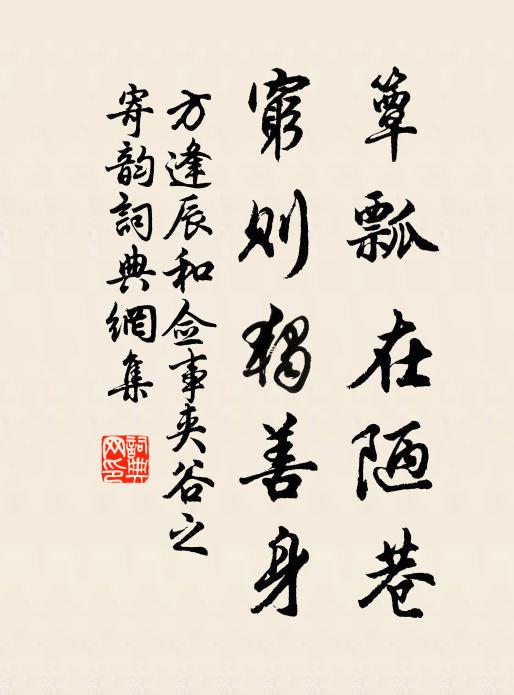 簞瓢在陋巷
窮則獨善身
方逢辰和僉事夾谷之
寄韵詞典網集
詞典
网印